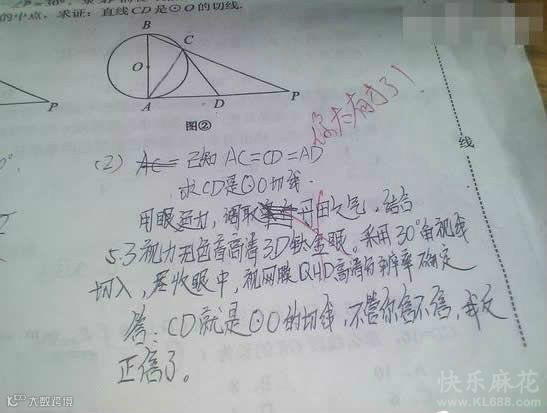 的中点，求证：直线CD是⊙O的切线.
B
C
O
A
D
P
P
图②
你太有才了！
线
(2) AC= 已知 AC=CD=AD
求CD是⊙O切线.
用眼运力，调取 丹田之气，结合
5.3视力无色盲高清3D钛金眼。采用30°角视线
切入，尽收眼中，视网膜QHD高清分辨率确定
答：CD就是⊙O的切线，不管你信不信，我反
正信了。
快乐麻花
www.KL688.com
大数跨境